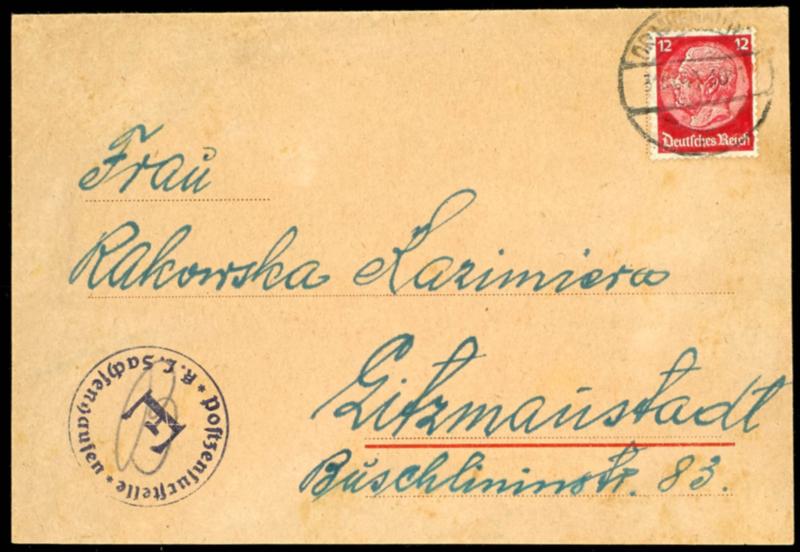 12 12
Deutſches Reich
Frau
Rakowska Kazimiera
Litzmaustadt
Buschlininstr. 83.
Poſtzenſurſtelle * K. L. Sachſenhauſen *